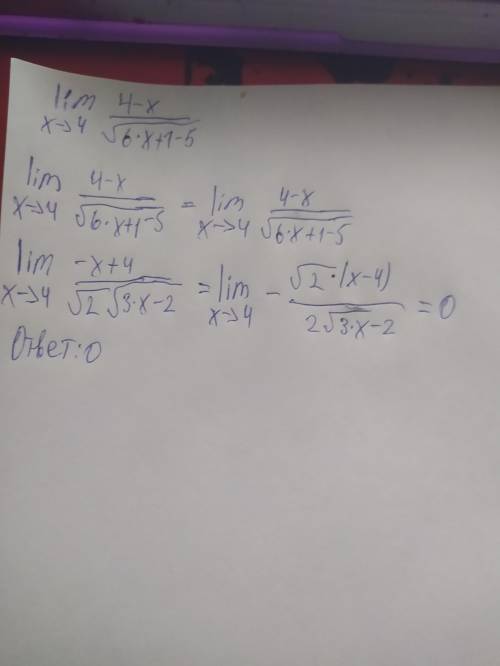 lim x→4 (4-x)/√(6·x+1-5)
lim x→4 (4-x)/√(6·x+1-5) = lim x→4 (4-x)/√(6·x+1-5)
lim x→4 (-x+4)/(√2 √(3·x-2)) = lim x→4 - (√2·(x-4))/(2√(3·x-2)) = 0
Ответ: 0